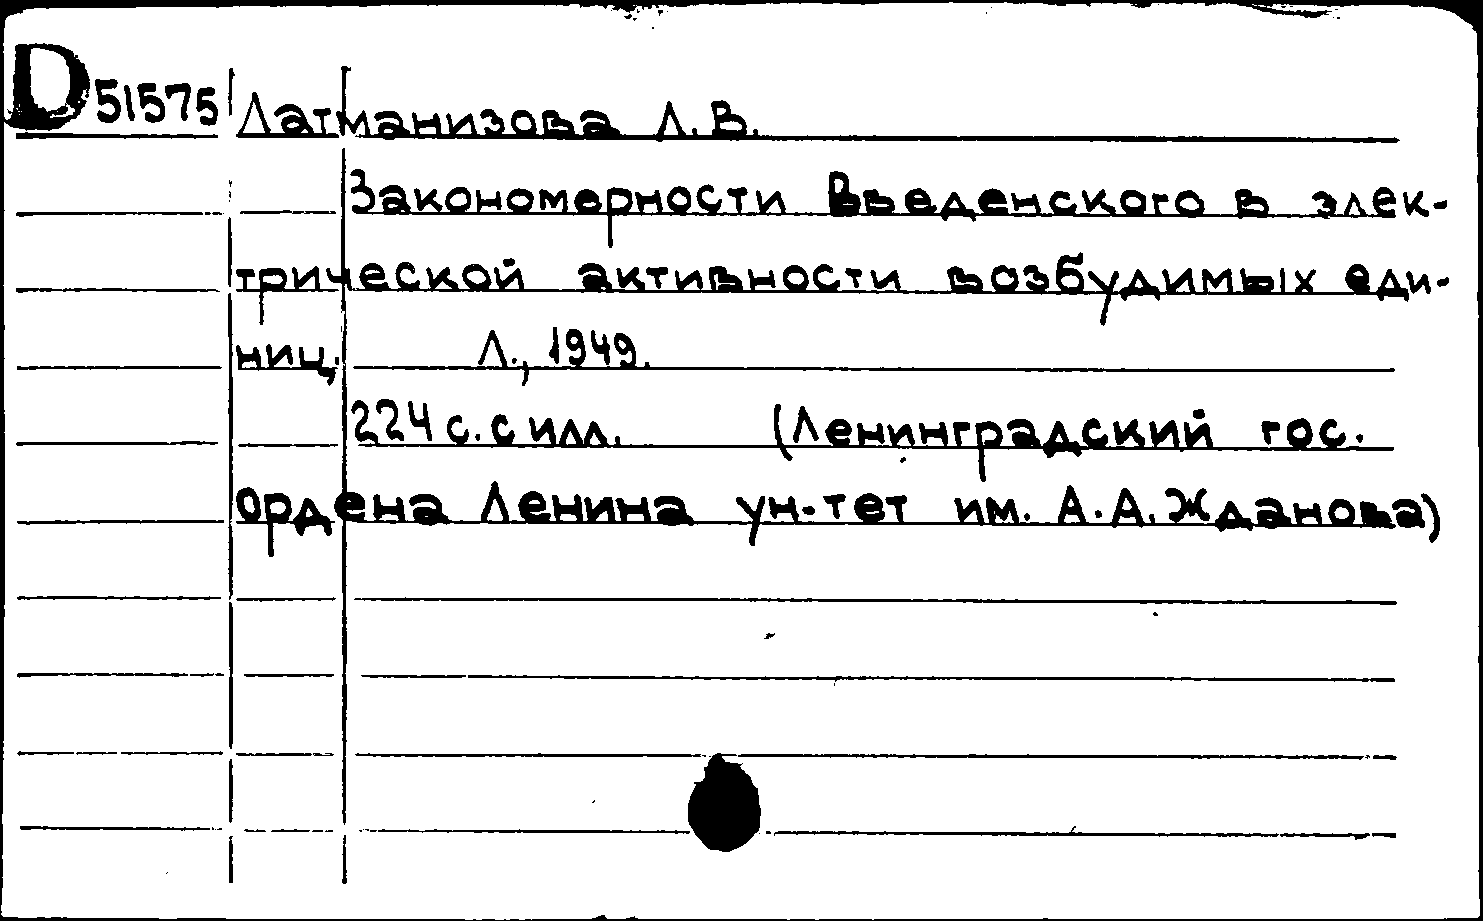 D 51575 Латманизова Л. В.
Закономерности Введенского в элек-
трической активности возбудимых еди-
ниц. Л., 1949.
224 с. с илл. (Ленинградский гос.
ордена Ленина ун-тет им. А. А. Жданова)